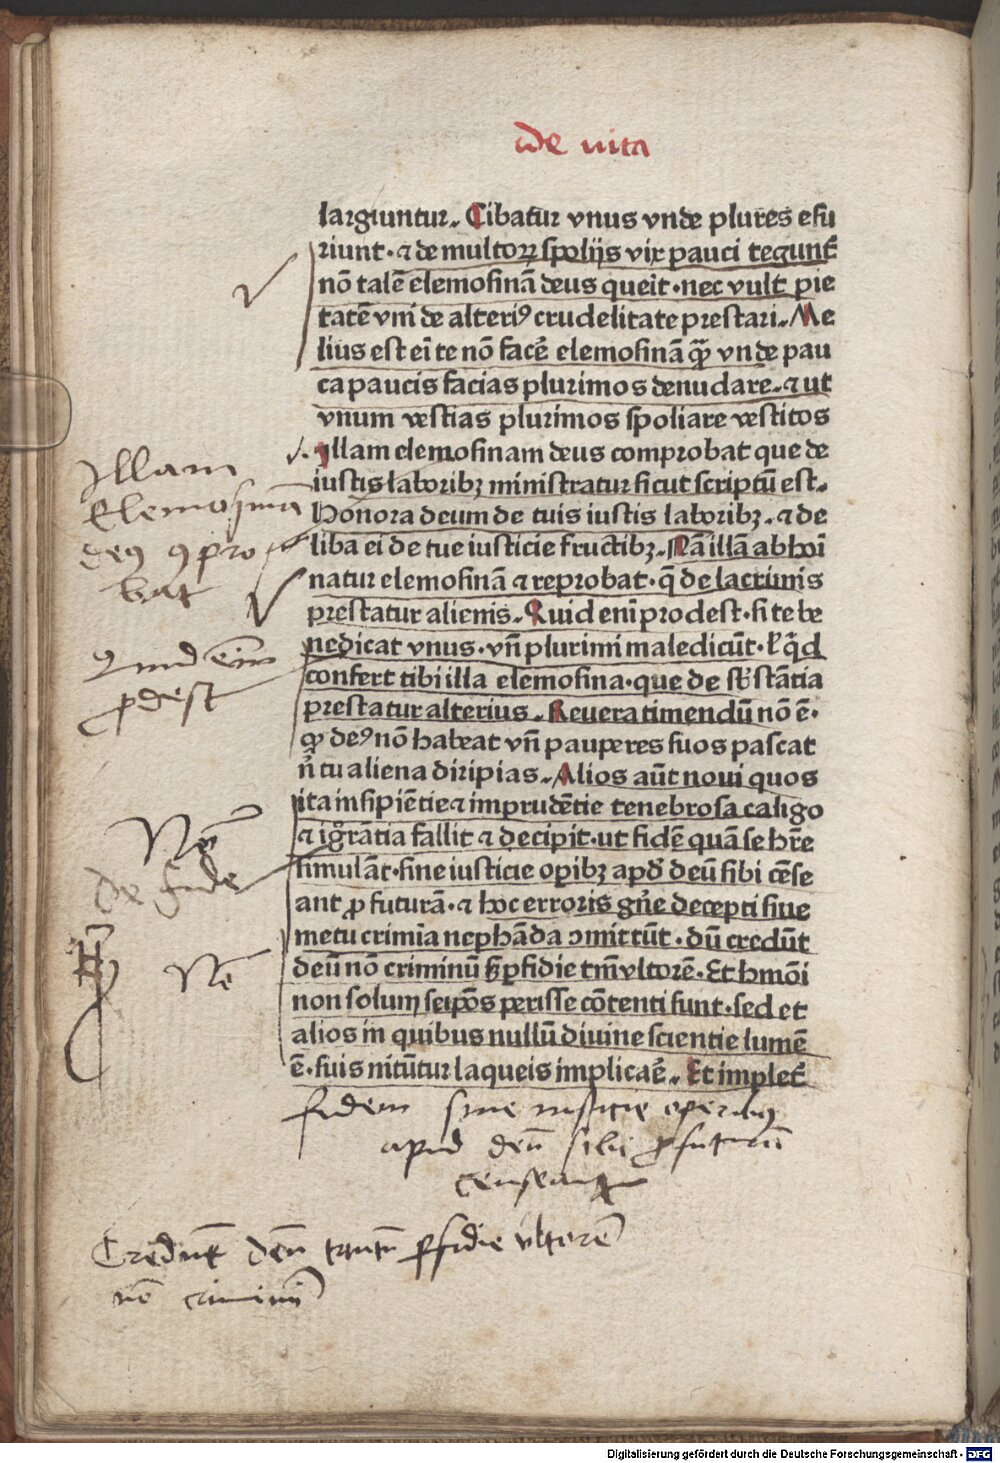 de vita
largiuntur. Cibatur vnus vnde plures esu
riunt · ⁊ de multoꝝ spolijs vix pauci tegunt̃
nō talē elemosinā deus querit · nec vult pie
tatē vni de alteriꝰ crudelitate prestari. Me
lius est em̄ te nō facē elemosinā q̄ꝫ vnde pau
ca paucis facias plurimos denudare. ⁊ ut
vnum vestias plurimos spoliare vestitos
Illam elemosinam deus comprobat que de
iustis laboribꝫ ministratur sicut scriptū est.
Honora deum de tuis iustis laboribꝫ. ⁊ de
liba ei de tue iusticie fructibꝫ. Nā illā abhoī
natur elemosinā ⁊ reprobat · q̄ de lacrimis
prestatur alienis. Quid enī prodest · si te be
nedicat vnus · vn̄ plurimi maledicūt · ł q̇d
confert tibi illa elemosina · que de sb̄stātia
prestatur alterius. Reuera timendū nō ē ·
qꝫ deꝰ nō habeat vn̄ pauperes suos pascat
n̄ tu aliena diripias. Alios aūt noui quos
ita insipiētie ⁊ imprudētie tenebrosa caligo
⁊ igr̄antia fallit ⁊ decipit · ut fidē quā se hr̄e
simulāt · sine iusticie opibꝫ apd̄ deū sibi cēse
ant ꝓfuturā · ⁊ hoc erroris gn̄e decepti siue
metu crimīa nephāda ↄmittūt · dū credūt
deū nō criminū sꝫ ꝑfidie tm̄ vltorē · Et hmōi
non solum seipōs perisse cōtenti sunt · sed et
alios in quibus nullū diuine scientie lumē
ē · suis nitūtur laqueis implicaē. Et implet̃
Illam
Elemosinā
deꝰ ꝯpro
bat
Quid eīm
ꝓdest
No
de fide
No
fidem sine iusticie operibꝰ
apud deū sibi ꝓfuturā
censeant
Credūt deū tantū ꝑfidie vltorē
nō criminū